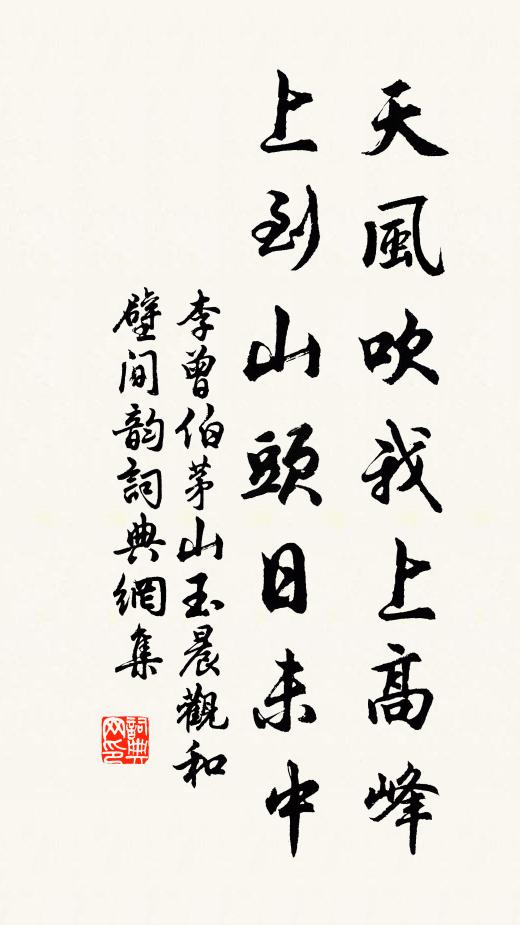 天風吹我上高峰
上到山頭日未中
李曾伯茅山玉晨觀和
壁間韵詞典網集
詞典
网印